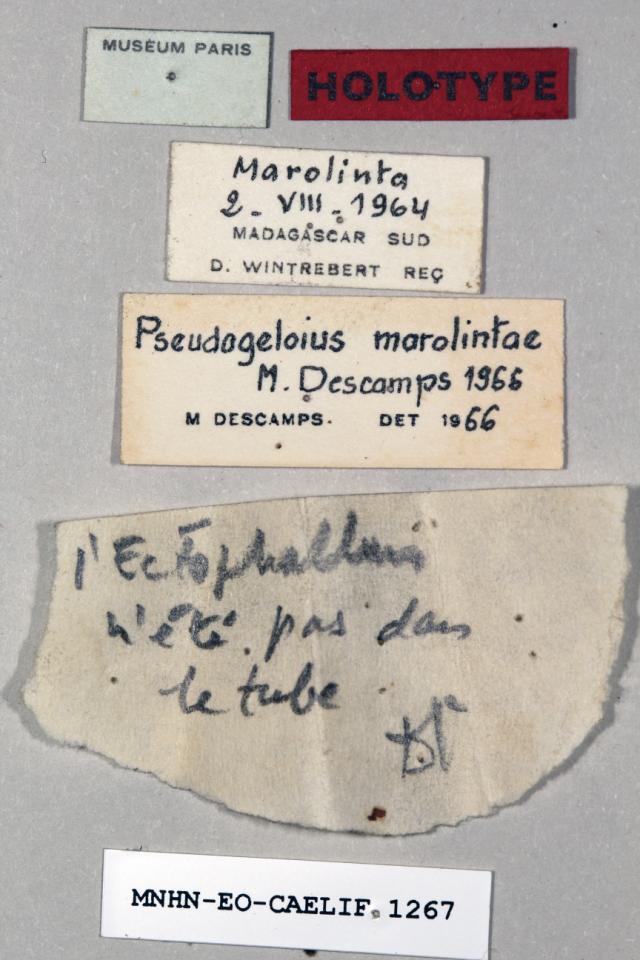 MUSEUM PARIS
HOLOTYPE
Marolinta
2_ VIII_ 1964
MADAGASCAR SUD
D. WINTREBERT REÇ
Pseudogeloius marolintae
M. Descamps 1966
M DESCAMPS. DET 1966
l'Ectophallus
n'été pas dans
le tube
MNHN-EO-CAELIF. 1267